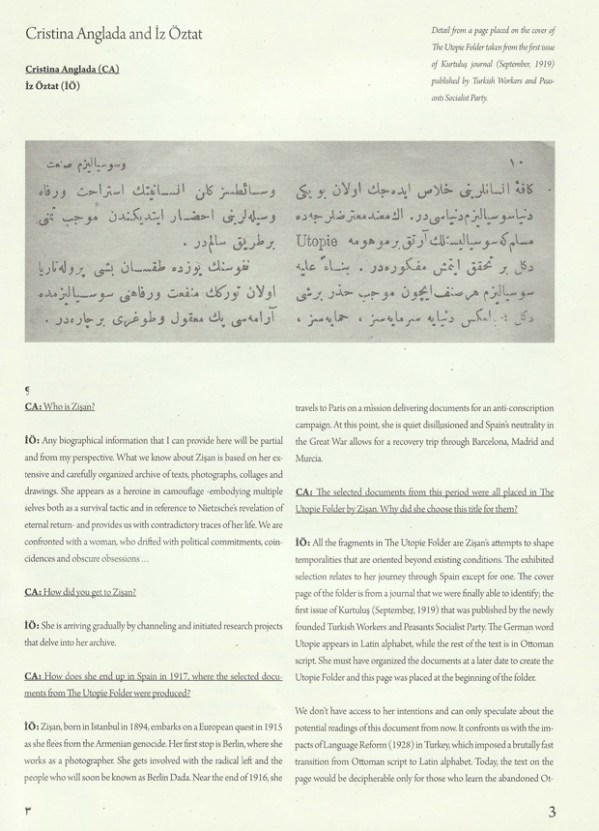 Cristina Anglada and İz Öztat
Cristina Anglada (CA)
İz Öztat (İÖ)
Detail from a page placed on the cover of
The Utopie Folder taken from the first issue
of Kurtuluş journal (September, 1919)
published by Turkish Workers and Peas-
ants Socialist Party.
١٠
كافهٔ انسانلرینی خلاص ایده‌جك اولان بو یكی
دنیا سوسیالیزم دنیاسی‌در . اك معند معترضلرجه‌ده
مسلم كه سوسیالیستلك آرتق بر موهومه Utopie
دكل بر تحقق ایتمش مفكوره‌در . بناءً علیه
سوسیالیزم هر صنف ایچون موجب حذر بر شی
دكل دنیایه سرمایه‌سز ، حمایه‌سز ،
وسوسیالیزم صنعت
وسائطسز كلن انسانیتك استراحت ورفاه
وسیله‌لرینی احضار ایتدیكندن موجب تمنی
بر طریق سالم‌در .
نفوسنك یوزده طقسان بشی پرولتاریا
اولان توركك منفعت ورفاهنی سوسیالیزمده
آرامه‌سی پك معقول وطوغری بر چاره‌در .
CA: Who is Zişan?
İÖ: Any biographical information that I can provide here will be partial
and from my perspective. What we know about Zişan is based on her ex-
tensive and carefully organized archive of texts, photographs, collages and
drawings. She appears as a heroine in camouflage -embodying multiple
selves both as a survival tactic and in reference to Nietzsche's revelation of
eternal return- and provides us with contradictory traces of her life. We are
confronted with a woman, who drifted with political commitments, coin-
cidences and obscure obsessions ...
CA: How did you get to Zişan?
İÖ: She is arriving gradually by channeling and initiated research projects
that delve into her archive.
CA: How does she end up in Spain in 1917, where the selected docu-
ments from The Utopie Folder were produced?
İÖ: Zişan, born in Istanbul in 1894, embarks on a European quest in 1915
as she flees from the Armenian genocide. Her first stop is Berlin, where she
works as a photographer. She gets involved with the radical left and the
people who will soon be known as Berlin Dada. Near the end of 1916, she
travels to Paris on a mission delivering documents for an anti-conscription
campaign. At this point, she is quiet disillusioned and Spain's neutrality in
the Great War allows for a recovery trip through Barcelona, Madrid and
Murcia.
CA: The selected documents from this period were all placed in The
Utopie Folder by Zişan. Why did she choose this title for them?
İÖ: All the fragments in The Utopie Folder are Zişan's attempts to shape
temporalities that are oriented beyond existing conditions. The exhibited
selection relates to her journey through Spain except for one. The cover
page of the folder is from a journal that we were finally able to identify; the
first issue of Kurtuluş (September, 1919) that was published by the newly
founded Turkish Workers and Peasants Socialist Party. The German word
Utopie appears in Latin alphabet, while the rest of the text is in Ottoman
script. She must have organized the documents at a later date to create the
Utopie Folder and this page was placed at the beginning of the folder.
We don't have access to her intentions and can only speculate about the
potential readings of this document from now. It confronts us with the im-
pacts of Language Reform (1928) in Turkey, which imposed a brutally fast
transition from Ottoman script to Latin alphabet. Today, the text on the
page would be decipherable only for those who learn the abandoned Ot-
٣
3